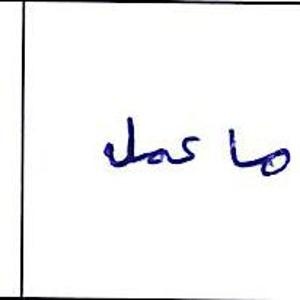 ما عمل